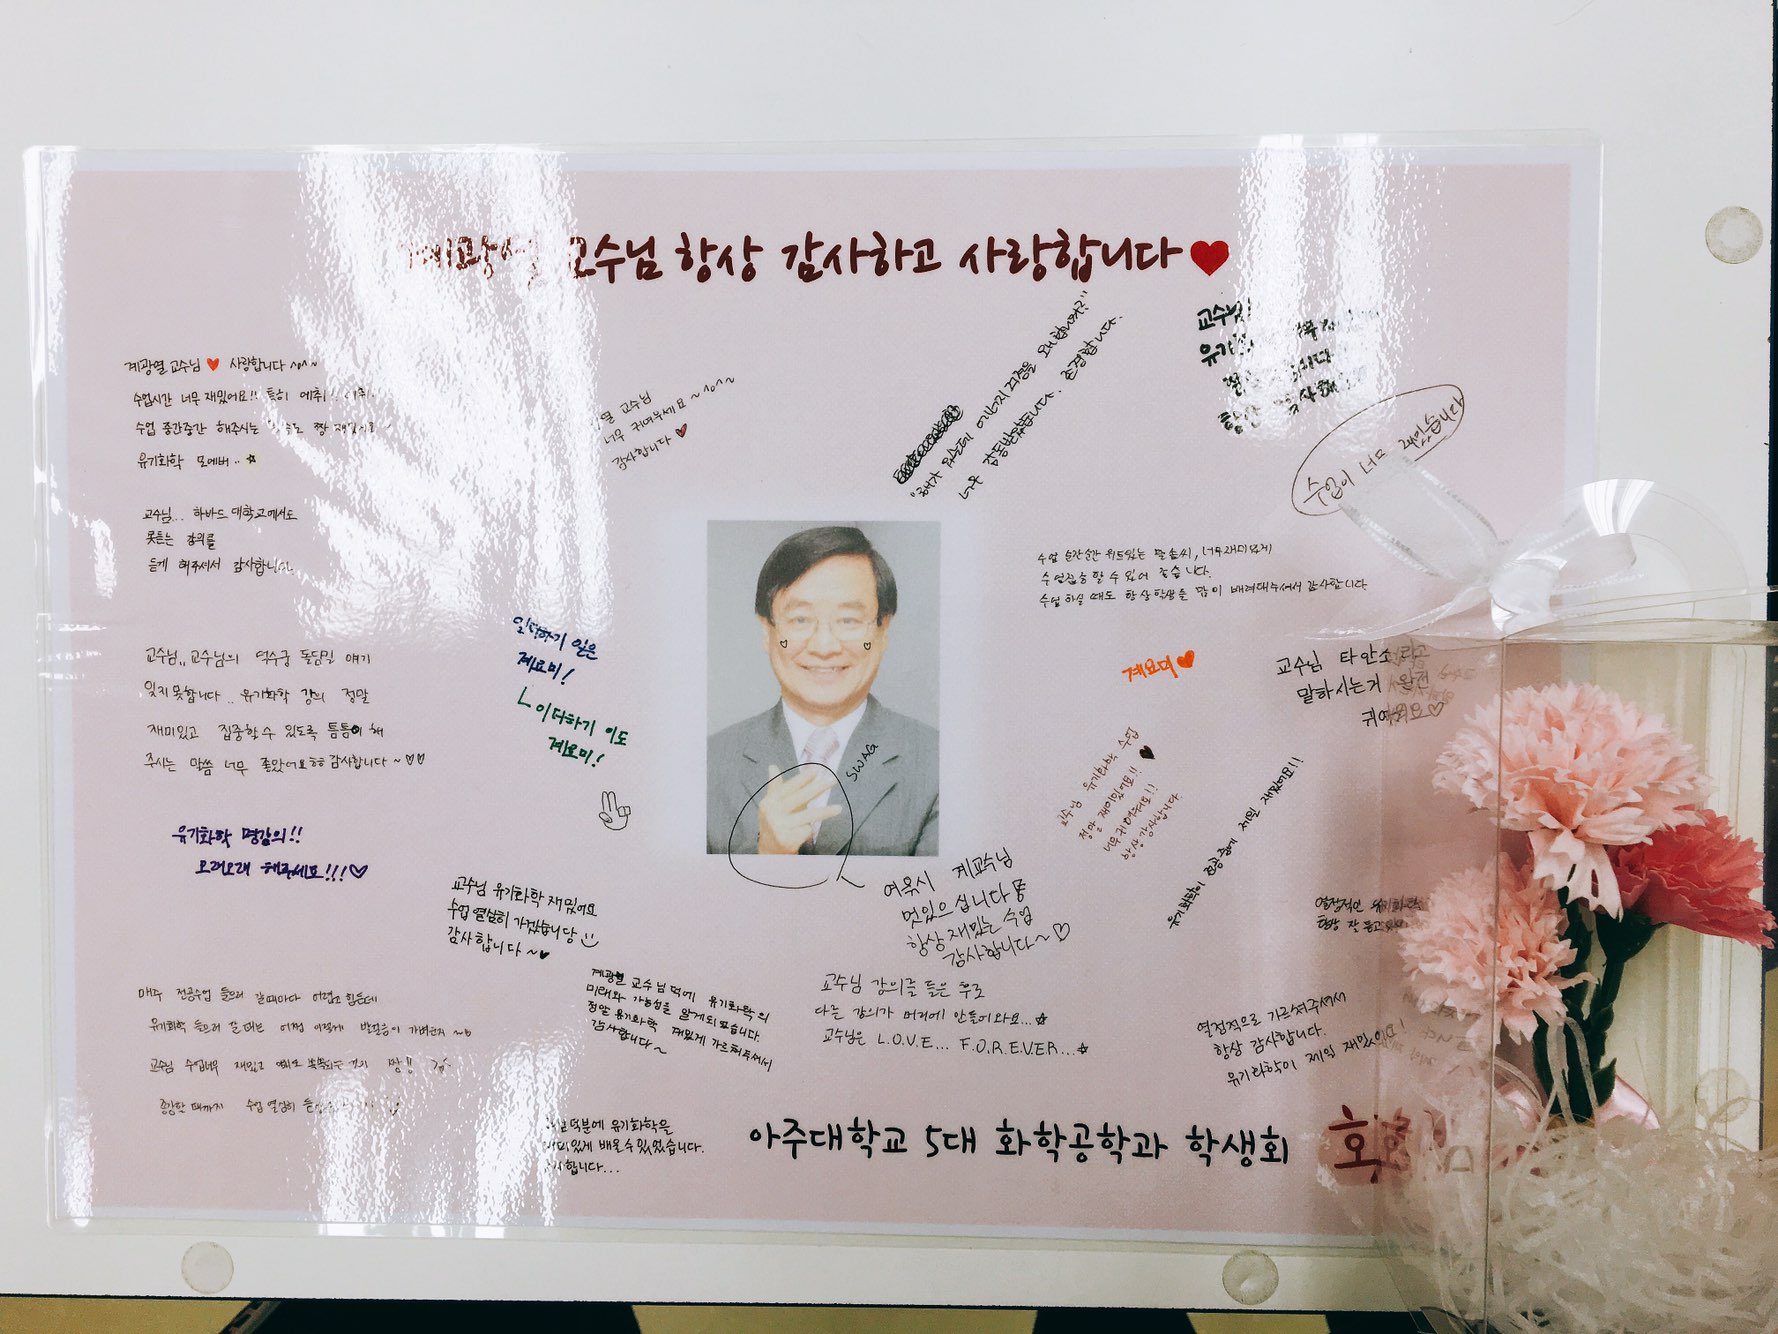 교수님 항상 감사하고 사랑합니다♥
계광열 교수님 ♥ 사랑합니다 ^o^~
수업시간 너무 재밌어요!! 특히
수업 중간중간 해주시는
유기화학 포에버..☆
교수님... 하바드 대학교에서도
못듣는 강의를
듣게 해주셔서 감사합니다.
교수님.. 교수님의 덕수궁 돌담길 얘기
잊지 못합니다.. 유기화학 강의 정말
재미있고 집중할수 있도록 틈틈이 해
주시는 말씀 너무 좋았어요ㅎㅎ 감사합니다~♡♡
유기화학 명강의!!
오래오래 해주세요!!!♡
매주 전공수업 들으러 갈때마다 어렵고 힘든데
유기화학 들으러 갈 때는 어쩜 이렇게 발걸음이 가벼운지~
교수님
종강할 때까지 수업 열심히
교수님
너무 귀여우세요~^o^~
감사합니다♥
일더하기 일은
계요미!
이더하기 이도
계요미!
교수님 유기화학 재밌어요
수업 열심히 가겠습니당
감사합니다~♥
계광열 교수님 덕에 유기화학의
미래와 가능성을 알게되었습니다.
정말 유기화학 재밌게 가르쳐주셔서
감사합니다~
덕분에 유기화학을
배울수있었습니다.
SWAG
"해가 있는데 에너지걱정을 왜 합니까?"
너무 감동받았습니다. 존경합니다.
교수님!
수업이 너무 재밌습니다
수업 순간순간 위트있는 말솜씨, 너무재미있게
수업집중 할 수 있어 좋습니다.
수업 하실 때도 항상 학생을 많이 배려해주셔서 감사합니다
계요미♥
교수님 타안소라고
말하시는거 완전
귀여워요♡
교수님 유기화학 수업 ♥
정말 재미있어요!!
너무 귀여워요!!
항상 감사합니다
유기화학이 전공중에 제일 재밌어요!!
여윽시 계교수님
멋있으십니다
항상 재밌는 수업
감사합니다~♡
교수님 강의를 들은 후로
다른 강의가 머리에 안들어와요...☆
교수님은 L.O.V.E... F.O.R.E.V.E.R...☆
열정적인 유기화학
열정적으로 가르쳐주셔서
항상 감사합니다.
유기화학이 제일 재밌어요!
아주대학교 5대 화학공학과 학생회